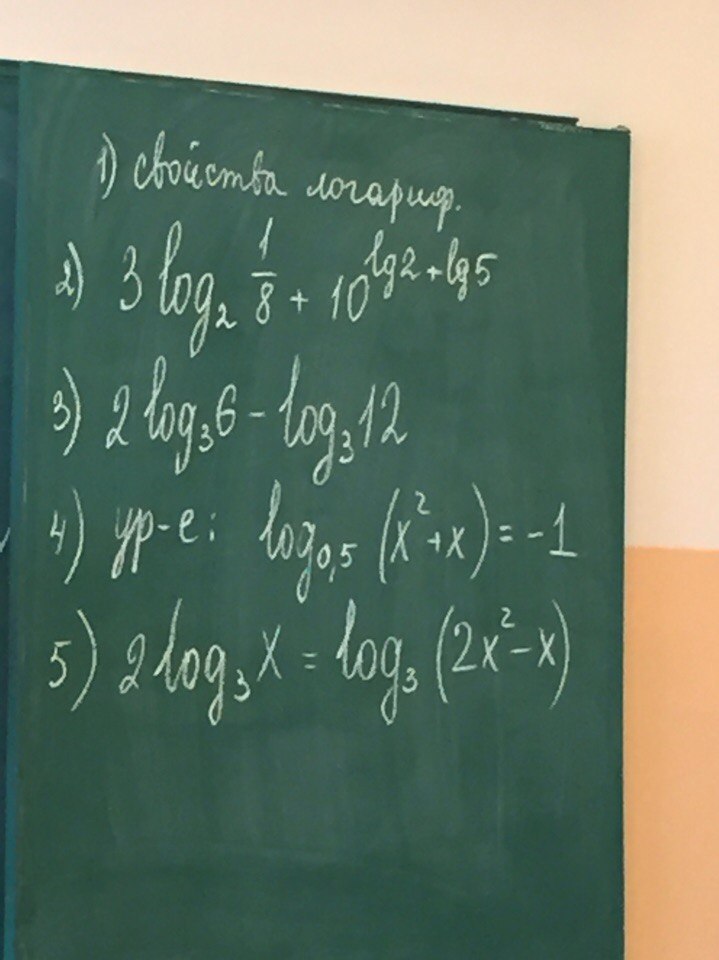 1) свойства логариф.
2) 3 log₂ 1/8 + 10^(lg2 + lg5)
3) 2 log₃6 - log₃12
4) ур-е: log₀,₅ (x² + x) = -1
5) 2 log₃ x = log₃ (2x² - x)